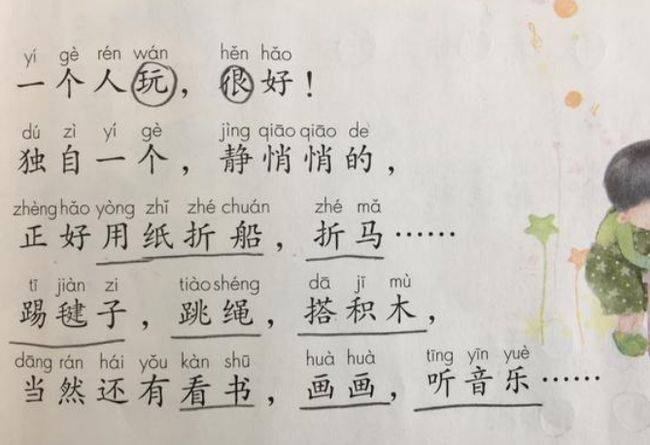 yí gè rén wán hěn hǎo
一个人玩，很好！
dú zì yí gè jìng qiāo qiāo de
独自一个，静悄悄的，
zhèng hǎo yòng zhǐ zhé chuán zhé mǎ
正好用纸折船，折马……
tī jiàn zi tiào shéng dā jī mù
踢毽子，跳绳，搭积木，
dāng rán hái yǒu kàn shū huà huà tīng yīn yuè
当然还有看书，画画，听音乐……